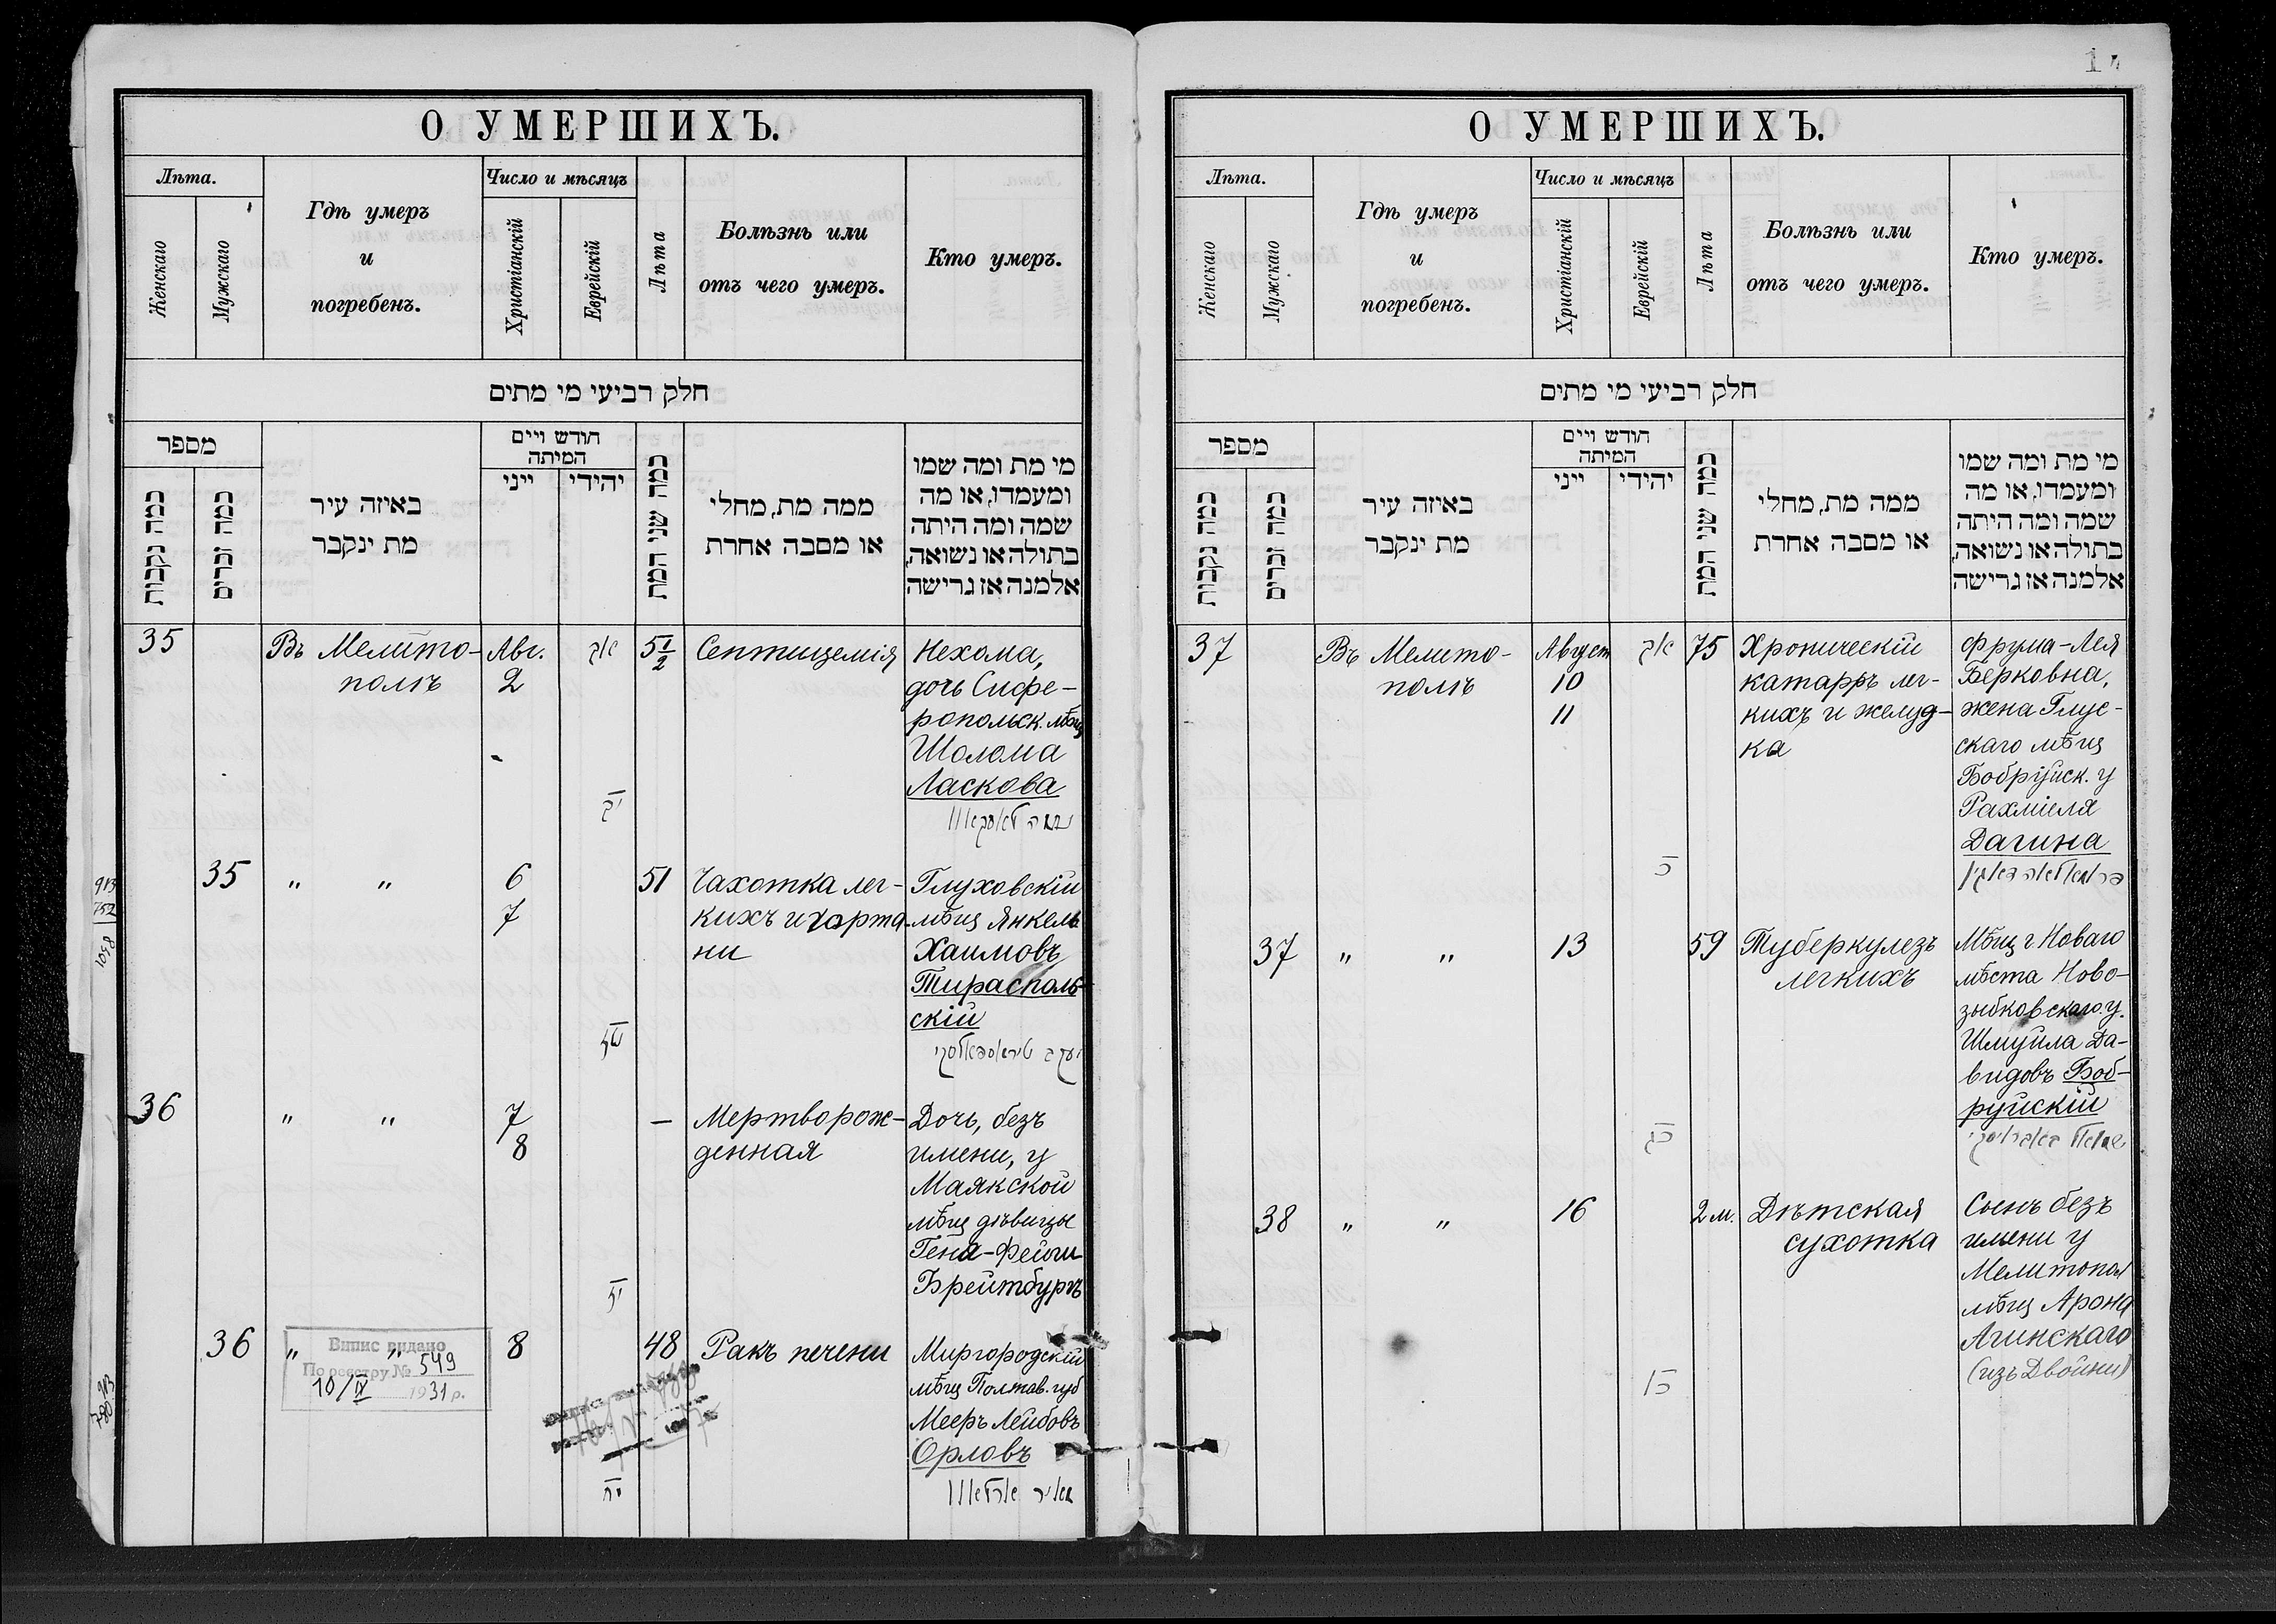 О УМЕРШИХЪ.
Лѣта.
Женскаго
Мужскаго
Гдѣ умеръ
и
погребенъ.
Число и мѣсяцъ
Христіанскій
Еврейскій
Лѣта
Болѣзнь или
отъ чего умеръ.
Кто умеръ.
חלק רביעי מי מתים
מספר
כמה נקבות
כמה זכרים
באיזה עיר
מת ינקבר
חודש ויים
המיתה
ייני
יהידי
כמה שני המת
ממה מת, מחלי
או מסבה אחרת
מי מת ומה שמו
ומעמדו, או מה
שמה ומה היתה
בתולה או נשואה,
אלמנה אז גרישה
35
Въ Мелито-
полѣ
Авг.
2
אב
5½
Септицемія
Нехома,
дочь Симфе-
ропольск. мѣщ
Шолома
Ласкова
35
" "
6
7
51
Чахотка лег-
кихъ и горта-
ни
Глуховскій
мѣщ Янкель
Хаимовъ
Тирасполь-
скій
יעקב טיראספאלסקי
36
" "
7
8
—
Мертворож-
денная
Дочь, безъ
имени, у
Маякской
мѣщ дѣвицы
Гена-Фейги
Брейтбургъ
36
" "
Випис видано
По реєстру № 549
10/IV 1931 р.
8
48
Ракъ печени
Миргородскій
мѣщ Полтав. губ
Мееръ Лейбовъ
Орловъ
מאיר ארלאוו
О УМЕРШИХЪ.
Лѣта.
Женскаго
Мужскаго
Гдѣ умеръ
и
погребенъ.
Число и мѣсяцъ
Христіанскій
Еврейскій
Лѣта
Болѣзнь или
отъ чего умеръ.
Кто умеръ.
חלק רביעי מי מתים
מספר
כמה נקבות
כמה זכרים
באיזה עיר
מת ינקבר
חודש ויים
המיתה
ייני
יהידי
כמה שני המת
ממה מת, מחלי
או מסבה אחרת
מי מת ומה שמו
ומעמדו, או מה
שמה ומה היתה
בתולה או נשואה,
אלמנה אז גרישה
37
Въ Мелито-
полѣ
Август
10
11
אב
75
Хроническій
катарръ лег-
кихъ и желуд-
ка
Фрума-Лея
Берковна,
жена Глус-
скаго мѣщ
Бобруйск. у
Рахміеля
Дагина
37
" "
13
59
Туберкулезъ
легкихъ
Мѣщ г Новаго
мѣста Ново-
зыбковскаго у.
Шмуйла Да-
видовъ Боб-
руйскій
38
" "
16
2 м.
Дѣтская
сухотка
Сынъ безъ
имени у
Мелитопол
мѣщ Арона
Агинскаго
(изъ Двойни)